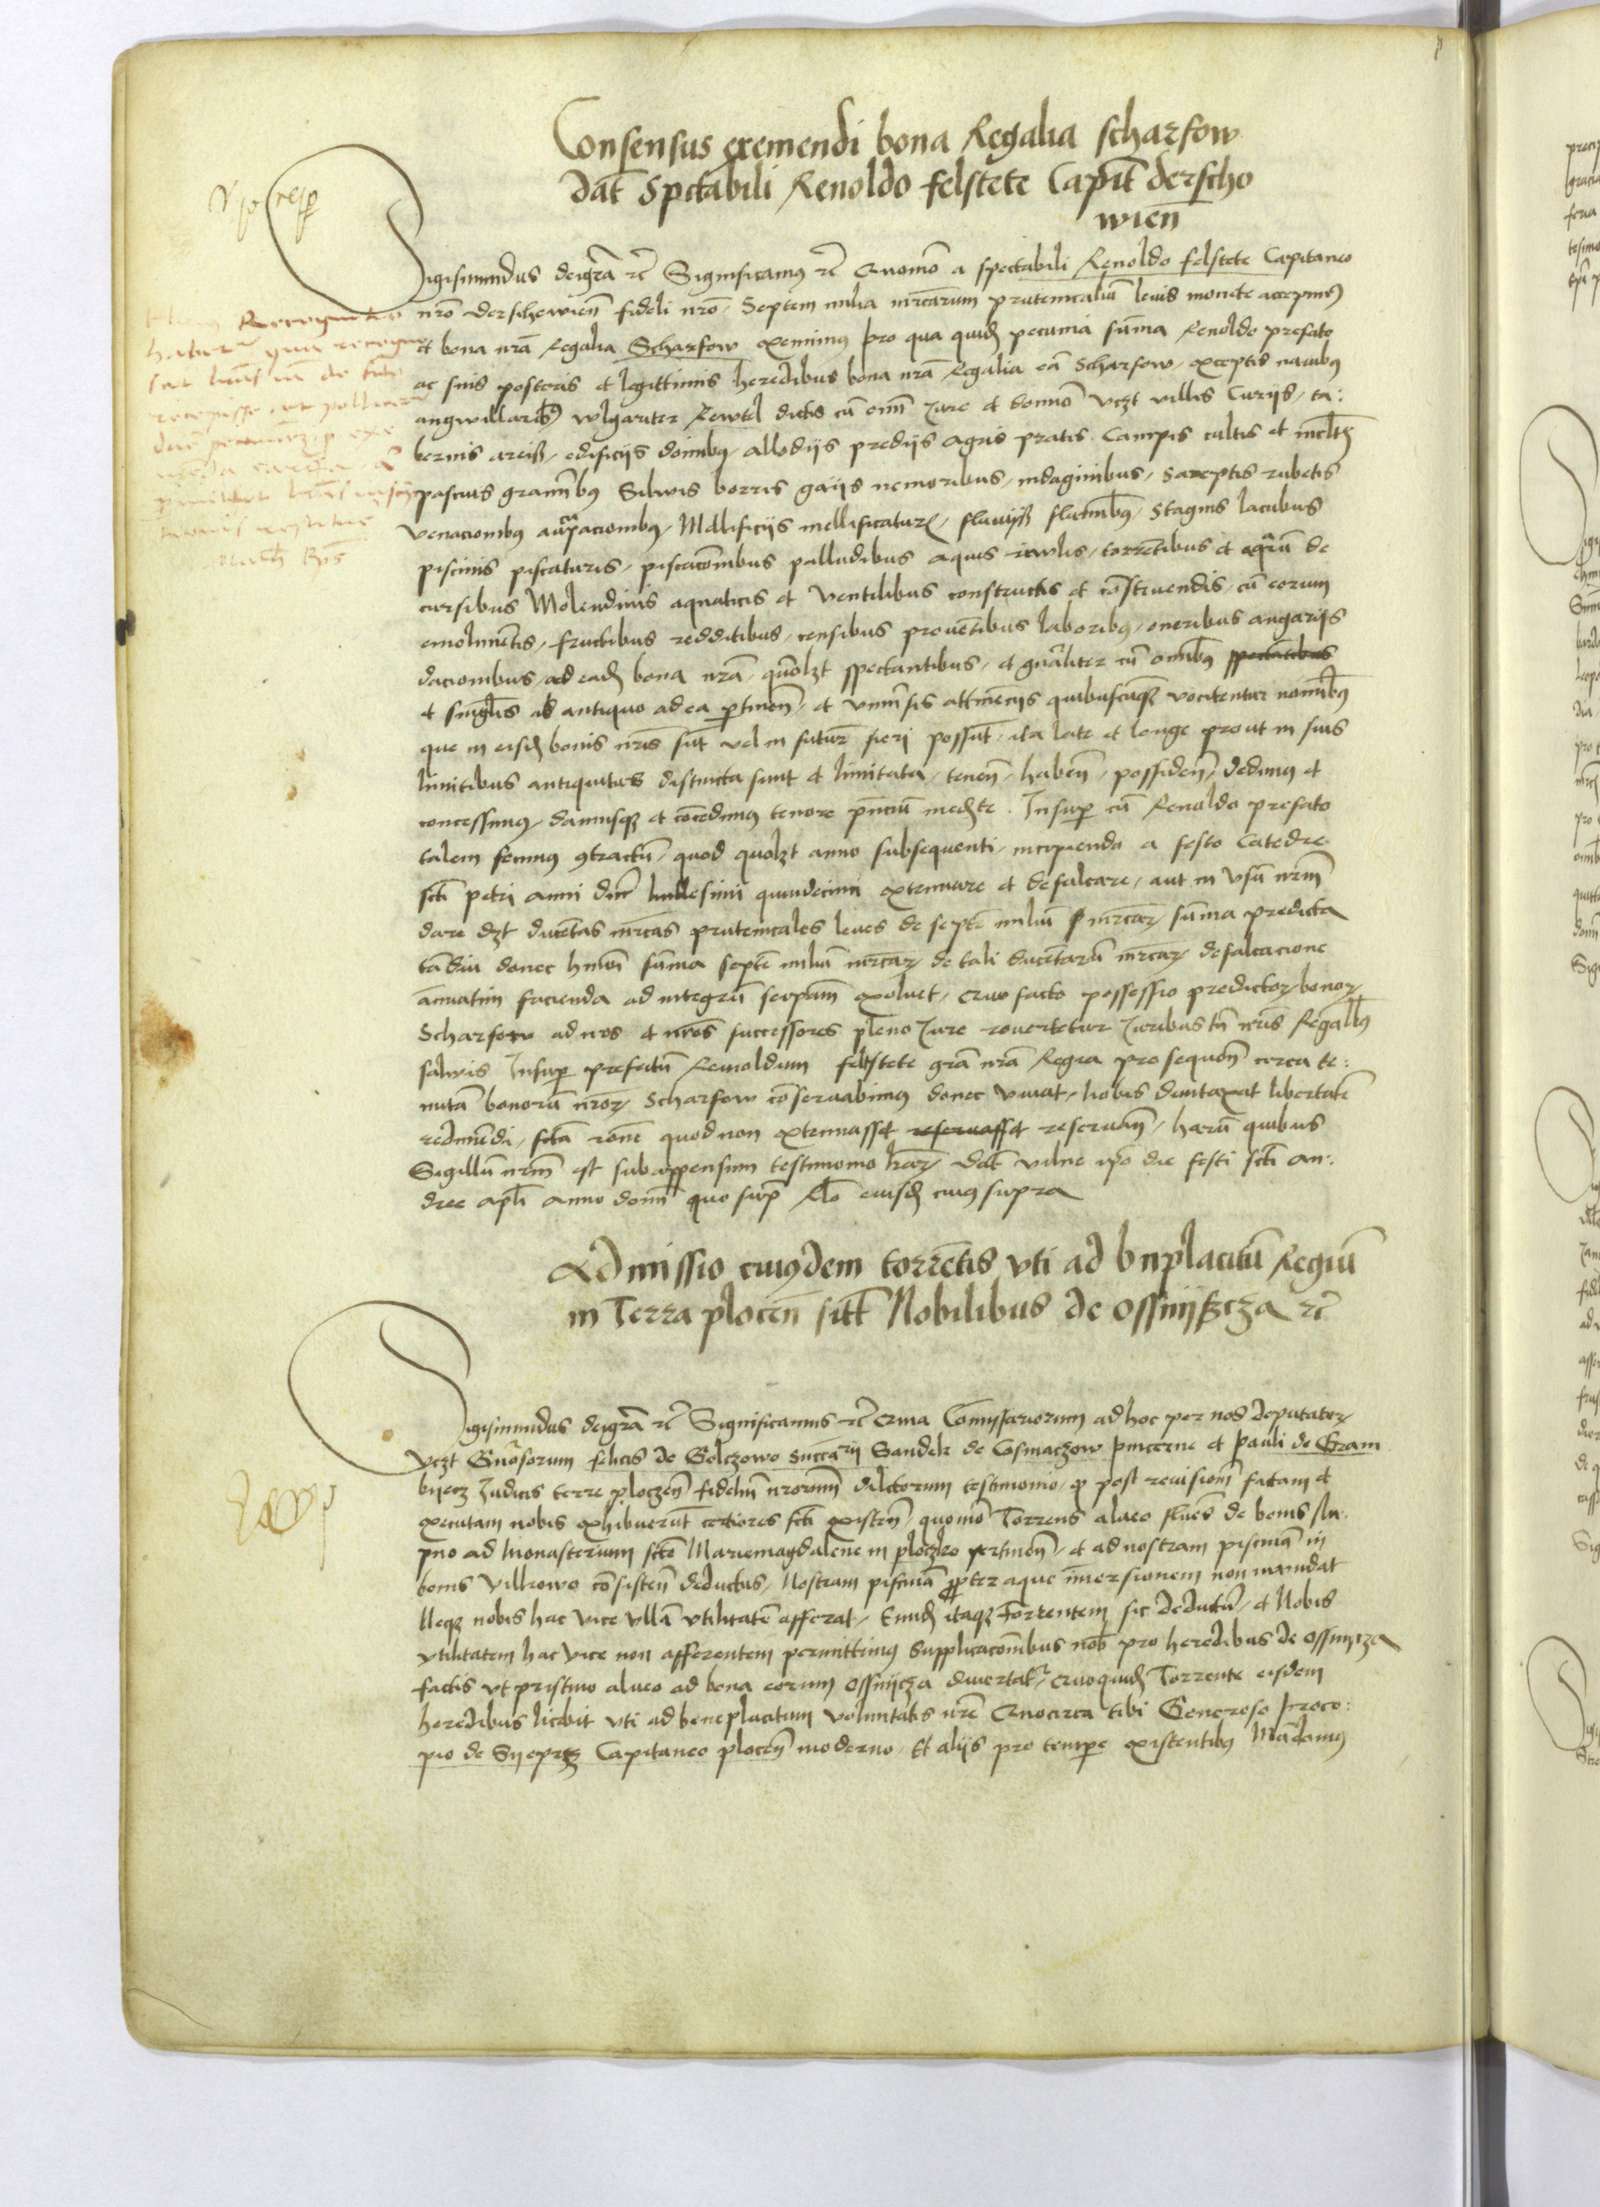 Consensus exemendi bona Regalia scharfow
dat̄ Spctabili Renoldo felstete Capit̄ derscho
wien̄
Sigismundus dei gr̄a rc̄ Significamus rc̄ Quomō a spectabili Renoldo felstete Capitaneo
nr̄o derschewien̄ fideli nr̄o, Septem milia mrcarum prutenicaliū levis monete accepimus
et bona nr̄a Regalia Scharfow exemimus pro qua quidē pecunia sūma Renoldo prefato
ac suis posteris et legittimis heredibus bona nr̄a Regalia eā Scharfow, exceptis navibus
angwillarib9 wlgariter Rewtel dictis cū omī Iure et domīo vczt villis Curiis, ta:
bernis areis, edificiis domibus, allodiis prediis agris pratis Campis cultis et incltis
pascuis graminibus Silvis borris gaiis nemoribus, indaginibus, Sareptis rubetis
venacionibus aucupacionibus, Mellificiis mellificaturis, fluviis fluminibus, Stagnis lacubus
piscinis piscaturis, piscacionibus palludibus aquis rivulis, torrentibus et aqrū de
cursibus Molendinis aquaticis et ventilibus constructis et cōstruendis, cū eorum
emolumentis, fructibus redditibus, censibus proventibus laboribus, oneribus angariis
dacionibus, ad eadē bona nr̄a, quōlzt spectantibus, et gn̄aliter cū omībus spectatibus
et singlis ab antiquo ad ea ptinen̄, et universis attinēciis quibuscuq3 vocitentur nomībus
que in eisdē bonis nr̄is sūt vel in futur̄ fieri possūt, ita late et longe prout in suis
limitibus antiquitus distincta sunt et limitata, tenen̄, haben̄, possiden̄, dedimus et
concessimus, damusq3 et cōcedimus tenore pn̄cium medte. Insup cū Renoldo prefato
talem fecimus 9tractū, quod quolzt anno subsequenti, incipiendo a festo Catedre
scti petri anni dnī millesimi quindecimi extenuare et defalcare, aut in usū nr̄m
dare dzt ducētas mrcas prutenicales leves de septē miliū mrcar, sūma predicta
tādiu donec hmōi sūma septē miliū mrcar, de tali ducētarū mrcar, defalcacione
annatim facienda ad integrū seipam exolvet, Quo facto possessio predictor bonor
Scharfow ad nos et nr̄os successores pleno Iure revertetur Iuribus tn̄ nr̄is Regalibus
salvis Insup prefatū Renoldum felstete gr̄a nr̄a Regia prosequen̄ circa te:
nutā bonorū nr̄or, Scharfow cōservabimus donec vivat, Nobis dumtaxat libertatē
redimēdi, sctā ronē quod non extenuasset reservasset reservān, harū quibus
Sigillū nr̄m est subappensum testimonio lrar, Dat̄ vilne ipo die festi scti An:
dree apli Anno domī quo sup Rlo eiusdē cuius supra
Admissio cuiusdem torrētis uti ad bnplacitū Regiū
in Terra plocen̄ sitt Nobilibus de Ossnijcza rc̄
Sigismundus dei gr̄a rc̄ Significamus rc̄ Quia Comissariorum ad hoc per nos deputator
vczt Gnōsorum felicis de Golczowo succarii Sandek de Cosmaczow pincerne et Pauli de Gram
bijecz Iudicis terre ploczen̄ fidelium nr̄orum dilctorum testimonio, qp post revisionē factam et
executam nobis exhibuerūt certiores scti existen̄, quomō Torrens alveo fluēs de bonis slu:
pno ad Monasterium scte Mariemagdalene in ploczko pertinen̄, et ad nostram piscinā in
bonis villcowo cōsisten̄ deductus, Nostram piscinā ppter aque īmersionem non inundat
Neq3 nobis hac vice ullā utilitatē afferat, Eundē itaq3 Torrentem sic deductū, et Nobis
utilitatem hac vice non afferentem permittimus Supplicacōibus nob pro heredibus de Ossnijcza
factis ut pristino alveo ad bona eorum Ossnijcza divertat, Quoquidē Torrente eisdem
heredibus licebit uti ad beneplacitum voluntatis nr̄e Quocirca tibi Generoso Proco:
pio de Sijeprcz Capitaneo plocen̄ moderno, Et aliis pro tempe existentibus Mādamus